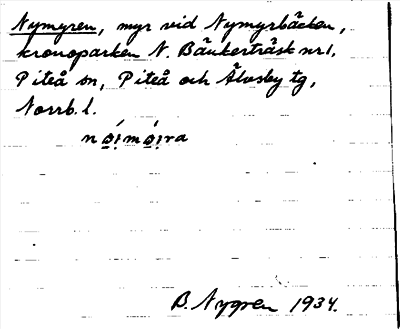 Nymyren, myr vid Nymyrbäcken,
kronoparken N. Bänkerträsk nr 1,
Piteå sn, Piteå och Älvsby tg,
Norrb. l.
B. Nygren 1934.